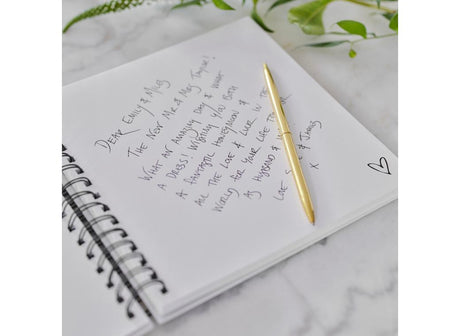 DEAR EMILY &
THE NEW MR & MRS TAYLOR!
WHAT AN AMAZING DAY & WHAT
A DRESS! WISHING YOU BOTH
A FANTASTIC HONEYMOON &
ALL THE LOVE & LUCK IN THE
WORLD FOR YOUR LIFE
AS HUSBAND &
LOVE & JAMES
X